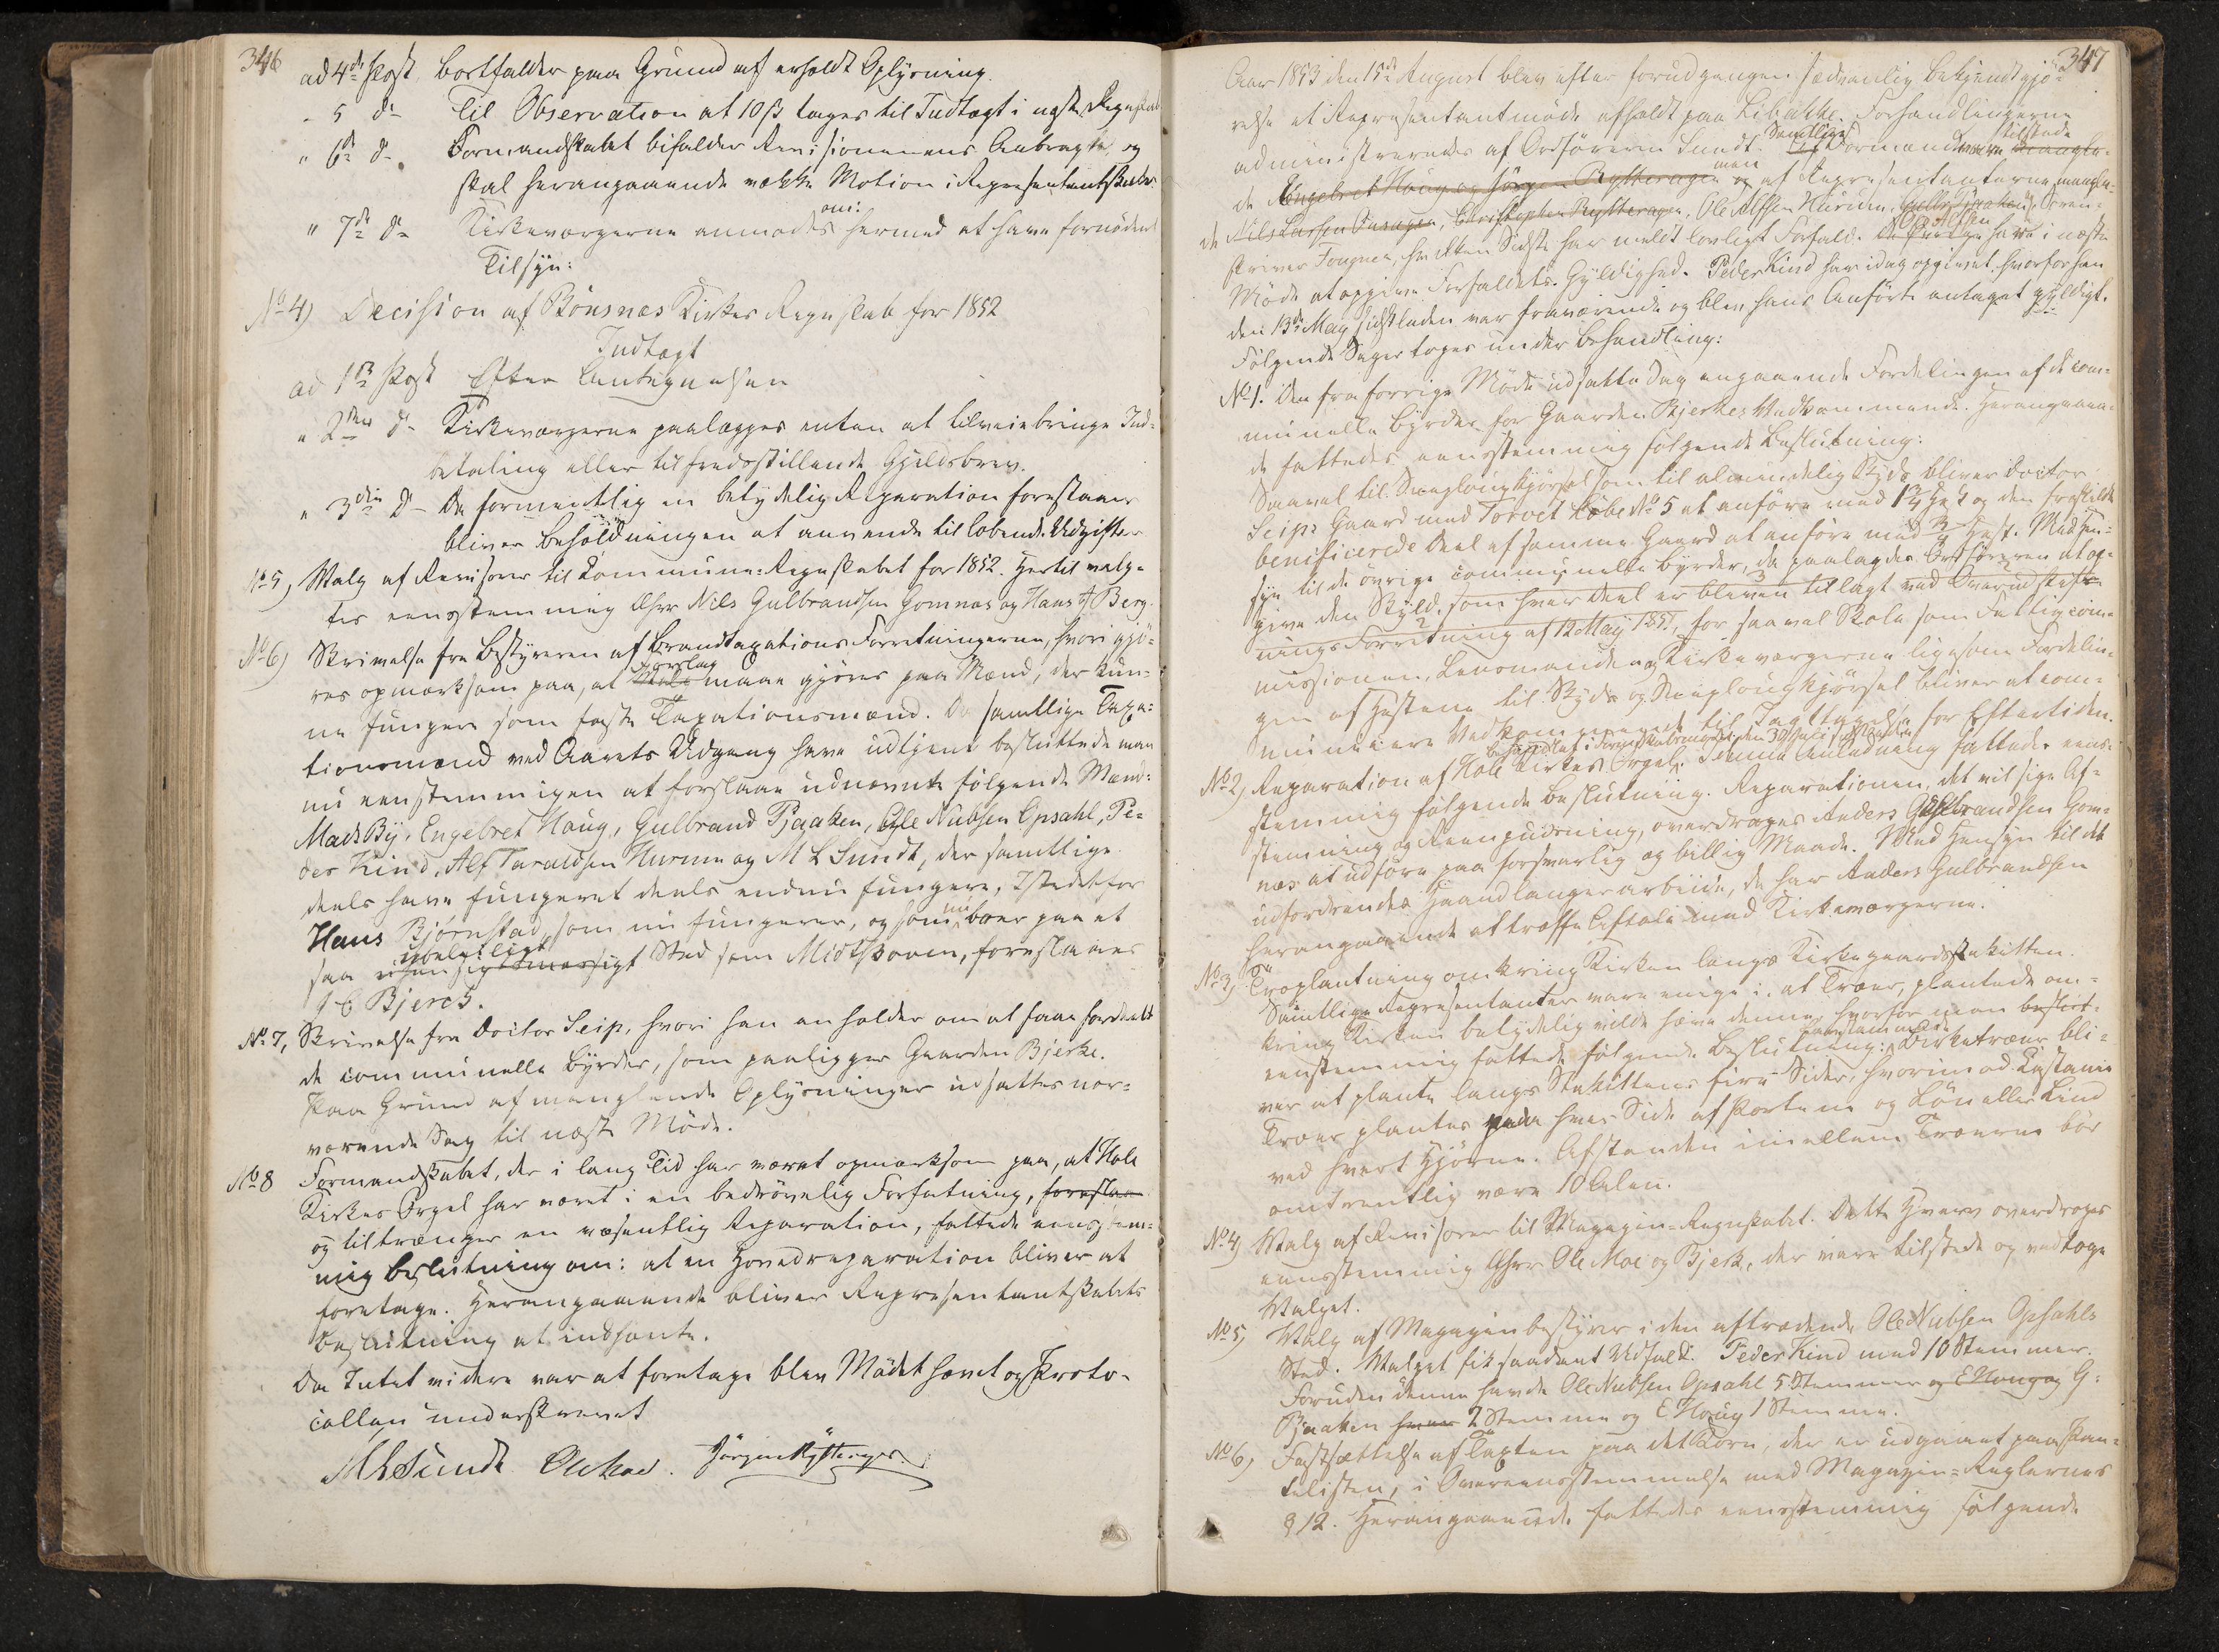 346
ad 4de Post bortfalder paa Grund af erholdt Oplysning.
- 5 do Til Observation at 10 ß tages til Indtægt i næste Regnskab
" 6te do Formandskabet bifalder Revisionenens Antragte, og
skal herangaaende vække Motion i Representantskabet
" 7de do Kirkeværgerne anmodes om: hermed at have fornödent
Tilsyn:
No 4) Decision af Bönsnæs Kirkes Regnskab for 1852
Indtægt
ad 1ste Post Efter Antegnelsen
" 2den do Kirkeværgerne paalægges enten at tilveiebringe Ind-
betaling eller tilfredsstillende Gjeldsbrev.
" 3die do Da formentlig en betydelig Reparation forestaaer
bliver Beholdningen at anvende til lobende Udgifter
No 5, Valg af Revisorer til Kommune-Regnskabet for 1852. Hertil valg-
tes eensstemmig Hrr Nils Gulbrandsen Gomnæs og Hans Berg.
No 6) Skrivelse fra Bestyreren af Brandtaxations-Forretningerne, hvori gjö-
res opmærksom paa, at Forslag maae gjöres paa Mænd, der kun-
ne fungere som faste Taxationsmænd. Da samtlige Taxa-
tionsmænd ved Aarets Udgang have udtjent besluttede man
nu eenstemmigen at forslaae udnævnte fölgende Mænd:
Mads By, Engebret Haug, Gulbrand Pjaaken, Ole Nubsen Opsahl, Pe-
der Hind, Alf Taraldsen Hurum og M L Sundt, der samtlige
deels have fungeret deels endnu fungere, Istedetfor
Hans Björnstad, som nu fungerer, og som nu boer paa et
saa ubeleiligt Sted som Midtskoven, foreslaaes
J C Bjerck.
No 7, Skrivelse fra Doctor Seip, hvori han anholder om at faae fordeelt
de communelle Byrder, som paaligger Gaarden Bjerke.
Paa Grund af manglende Oplysninger udsattes nær-
værende Sag til næste Möde.
No 8 Formandskabet, der i lang Tid har været opmærksom paa, at Hole
Kirkes Orgel har været i en bedrövelig Forfatning, foreslaae
og tiltrænger en væsentlig Reparation, fattede eensstem-
mig Beslutning om: at en Hovedreparation bliver at
foretage. Herangaaende bliver Representantskabets
Beslutning at indhente.
Da Intet videre var at foretage blev Mödet hævet og Proto-
collen underskrevet
MLSundt Ole Moe. Jörgen Rytterager
347
Aar 1853 den 15de August blev efter forudgangen sædvanlig Bekjendtgjö-
relse et Representantmöde afholdt paa Libakke. Forhandlingerne
administreredes af Ordföreren Sundt. Samtlige Af Formændene vare tilstede mangle-
de Engebret Haug og Jörgen Rytterager men og af Representanterne mangle-
de Nils Larsen Fjeragen, Christopher Rytterager, Ole Alfsen Hurum, Soren-
skriver Fougner, hvilken Sidste har meldt lovligt Forfald. Ole Alfsen have i næste
Möde at opgive Forfaldets Gyldighed. Peder Hind har idag opgivet, hvorfor han
den 13de May sidstleden var fraværende og blev hans Anförte antaget gyldigt.
Fölgende Sager toges under Behandling:
No 1. Den fra forrige Möde udsatte Sag angaaende Fordelingen af de com-
munelle Byrder for Gaarden Bjerkes Vedkommende. Herangaaen-
de fattedes eensstemmig fölgende Beslutning:
Saavel til Sneplougkjörsel som til almindelig Skyds bliver Doctor
Seips Gaard med Torvet Löbe No 5 at anföre med 1 3/4 Hest og den fraskilte
benificerede Deel af samme Gaard at anföre med 3/4 Hest. Med Hen-
syn til de övrige communelle Byrder, da paalagdes Ordföreren at op-
give den Skyld, som hver Deel er bleven tillagt ved Overudskift-
nings Forretning af 12 May 1852, for saavel Skole som Fattigcom-
missionen, Lensmanden og Kirkeværgerne ligesom Fordelin-
gen af Hestene til Skyds og Sneplougkjörsel bliver at com-
municere Vedkommende til Iagttagelse for Eftertiden.
No 2, Reparation af Hole Kirkes Orgel, behandlet i Formandskabsmöde den 30 Juni. I denne Anledning fattedes eens-
stemmig fölgende Beslutning. Reparationen, det vil sige Af-
stemning og Reenpudsning, overdrages Anders Gulbrandsen Gom-
næs at udföre paa forsvarlig og billig Maade. Med Hensyn til det
udfordrende Haandlangerarbeide, da har Anders Gulbrandsen
herangaaende at træffe Aftale med Kirkeværgerne.
No 3, Træplantning omkring Kirken langs Kirkegaardsstakitten.
Samtlige Representanter vare enige i, at Træer, plantede om-
kring Kirken betydelig vilde hæve denne, hvorfor man beslut-
eenstemmig fattede fölgende Beslutning: Birketræer bli-
ver at plante langs Stakittens fire Sider, hvorimod Kastanie
Træer plantes paa hver Side af Portene og Lön eller Lind
ved hvert Hjörne. Afstanden imellem Træerne bör
omtrentlig være 10 Alen.
No 4, Valg af Revisorer til Magazin-Regnskabet. Dette Hverv overdroges
eensstemmig Hrr Ole Moe og Bjerk, der vare tilstede og vedtoge
Valget.
No 5, Valg af Magazinbestyrer i den aftrædende Ole Nubsen Opsahls
Sted. Valget fik saadant Udfald: Peder Hind med 10 Stemmer.
Foruden denne havde Ole Nubsen Opsahl 5 Stemmer og E Haug og G:
Pjaaken hver 2 Stemme og E Haug 1 Stemme.
No 6, Fastsættelse af Taxten paa det Korn, der er udgaaet paa Pan-
telisten, i Overeensstemmelse med Magazin-Reglernes
§ 12. Herangaaende fattedes eensstemmig fölgende